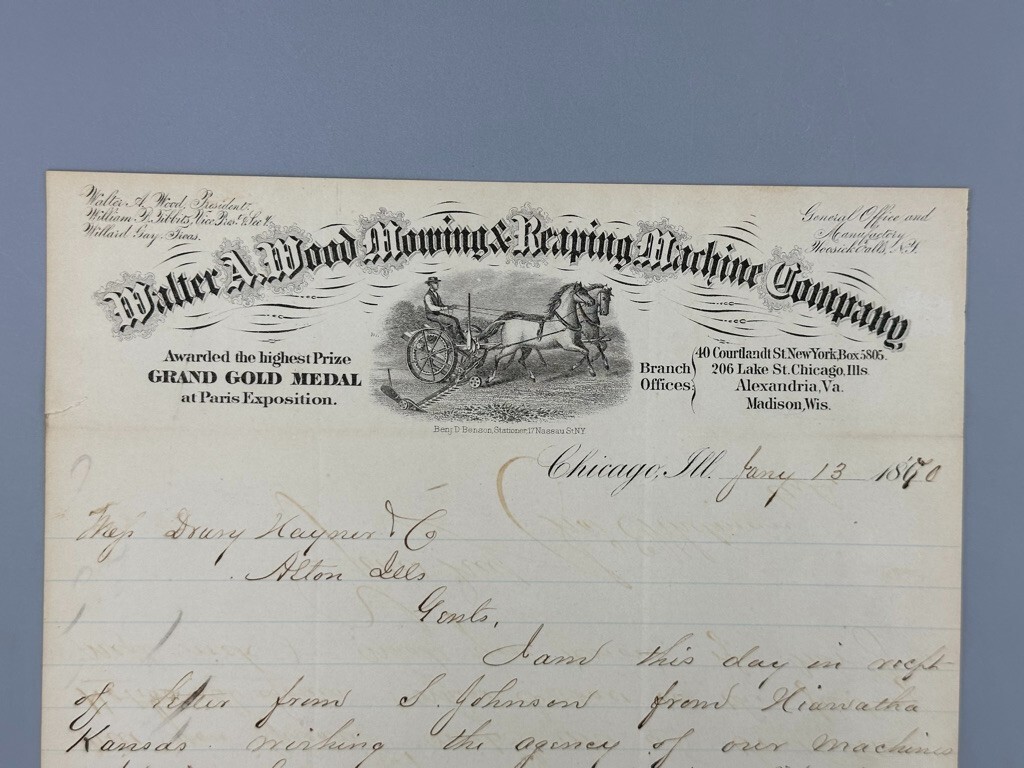 Walter A. Wood, President,
William B. Tibbits, Vice Pres. & Sec'y.
Willard Gay, Treas.
General Office and
Manufactory
Hoosick Falls, N.Y.
Walter A. Wood Mowing & Reaping Machine Company,
Awarded the highest Prize
GRAND GOLD MEDAL
at Paris Exposition.
Branch
Offices
40 Courtlandt St. New York, Box 5805.
206 Lake St. Chicago, Ills.
Alexandria, Va.
Madison, Wis.
Benj. D. Benson, Stationer, 17 Nassau St. N.Y.
Chicago, Ill. Jany 13 1870
Mess Drury Hayner & Co
Alton Ills
Gents,
I am this day in rect
of letter from S. Johnson from Hiawatha
Kansas wishing the agency of our Machines